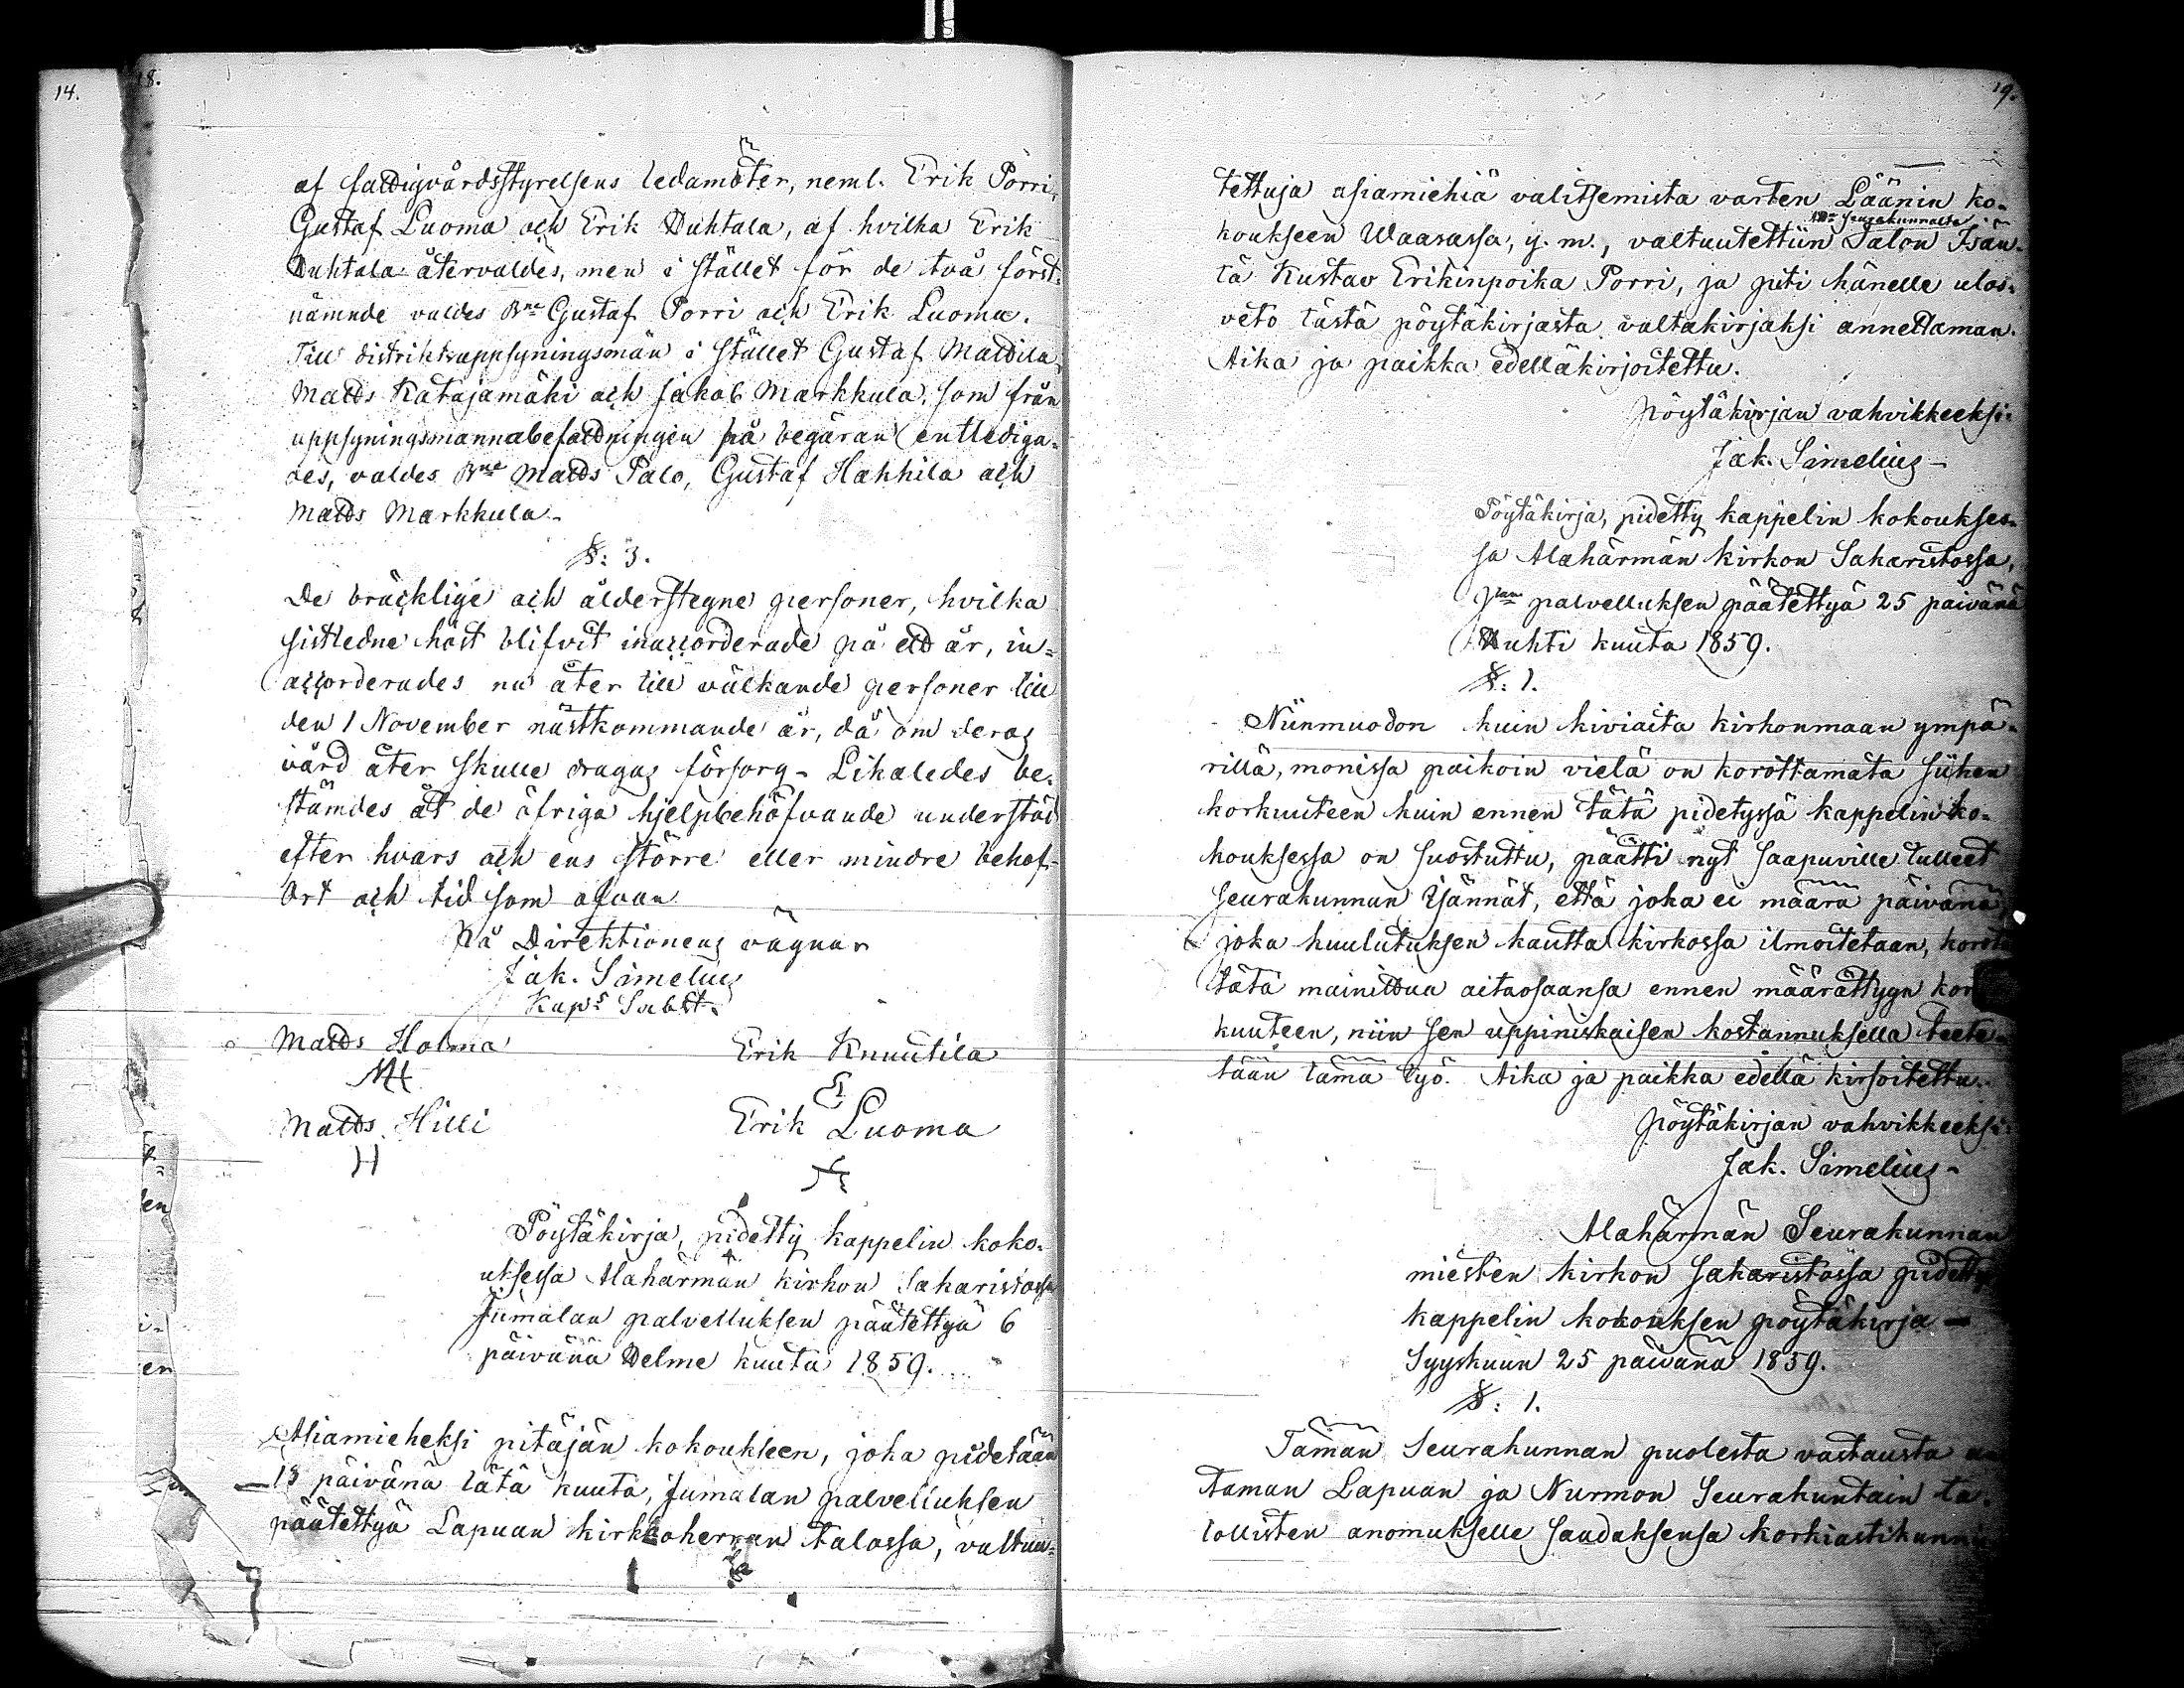 14.
18.
af fattigvårdsstyrelsens ledamöter, neml. Erik Porri,
Gustaf Luoma och Erik Huhtala, af hvilka Erik
Huhtala återvaldes, men i stället för de två först-
nämnde valdes Bne Gustaf Porri och Erik Luoma.
Till distriktsuppsyningsmän i stället Gustaf Mattila,
Matts Katajamäki och Jakob Markkula, som från
uppsyningsmannabefattningen på begäran entlediga-
des, valdes Bne Matts Palo, Gustaf Hahhila och
Matts Markkula.
§: 3.
De bräcklige och ålderstegne personer, hvilka
sistledne höst blifvit inaccorderade på ett år, in-
accorderades nu åter till välkände personer till
den 1 November nästkommande år, då om deras
vård åter skulle dragas försorg - Likaledes be-
stämdes åt de öfriga hjelpbehöfvande understöd
efter hvars och ens större eller mindre behof.
Ort och tid som ofvan
På Direktionens vägnar
Jak. Simelius
Kaps Subst.
Matts Holma
Erik Knuutila
Matts Hilli
H
Erik Luoma
Pöytäkirja, pidetty kappelin koko-
uksessa Alahärmän kirkon Sakaristossa
Jumalan palvelluksen päätettyä 6
päivänä Helme kuuta 1859.
Asiamieheksi pitäjän kokoukseen, joka pidetään
13 päivänä tätä kuuta, Jumalan palvelluksen
päätettyä Lapuan kirkkoherran talossa, valtuu-
19.
tettuja asiamiehiä valitsemista varten Läänin ko-
koukseen Waasassa, y. m., valtuutettiin Seurakunnalta Talon Isän-
tä Kustav Erikinpoika Porri, ja piti hänelle ulos-
veto tästä pöytäkirjasta valtakirjaksi annettaman.
Aika ja paikka edelläkirjoitettu.
Pöytäkirjan vahvikkeeksi:
Jak. Simelius -
Pöytäkirja, pidetty kappelin kokoukses-
sa Alahärmän kirkon Sakaristossa,
Jlan palvelluksen päätettyä 25 päivänä
Huhti kuuta 1859.
§: 1.
Niinmuodon kuin kiviaita kirkonmaan ympä-
rillä, monissa paikoin vielä on korottamata siihen
korkuuteen kuin ennen tätä pidetyssä kappelin ko-
kouksessa on suostuttu, päätti nyt saapuville tulleet
seurakunnan isännät, että joka ei määrä päivänä,
joka kuulutuksen kautta kirkossa ilmoitetaan, korota
tätä mainittua aitaosaansa ennen määrättyyn kor
kuuteen, niin sen uppiniskaisen kostannuksella teete-
tään tämä työ. Aika ja paikka edellä kirjoitettu.
Pöytäkirjan vahvikkeeksi:
Jak. Simelius -
Alahärmän Seurakunnan
miesten kirkon Sakaristossa pidetty
kappelin kokouksen pöytäkirja —
Syyskuun 25 päivänä 1859.
§: 1.
Tämän Seurakunnan puolesta vastausta an
taman Lapuan ja Nurmon Seurakuntain ta-
lollisten anomukselle saadaksensa korkiastikunni